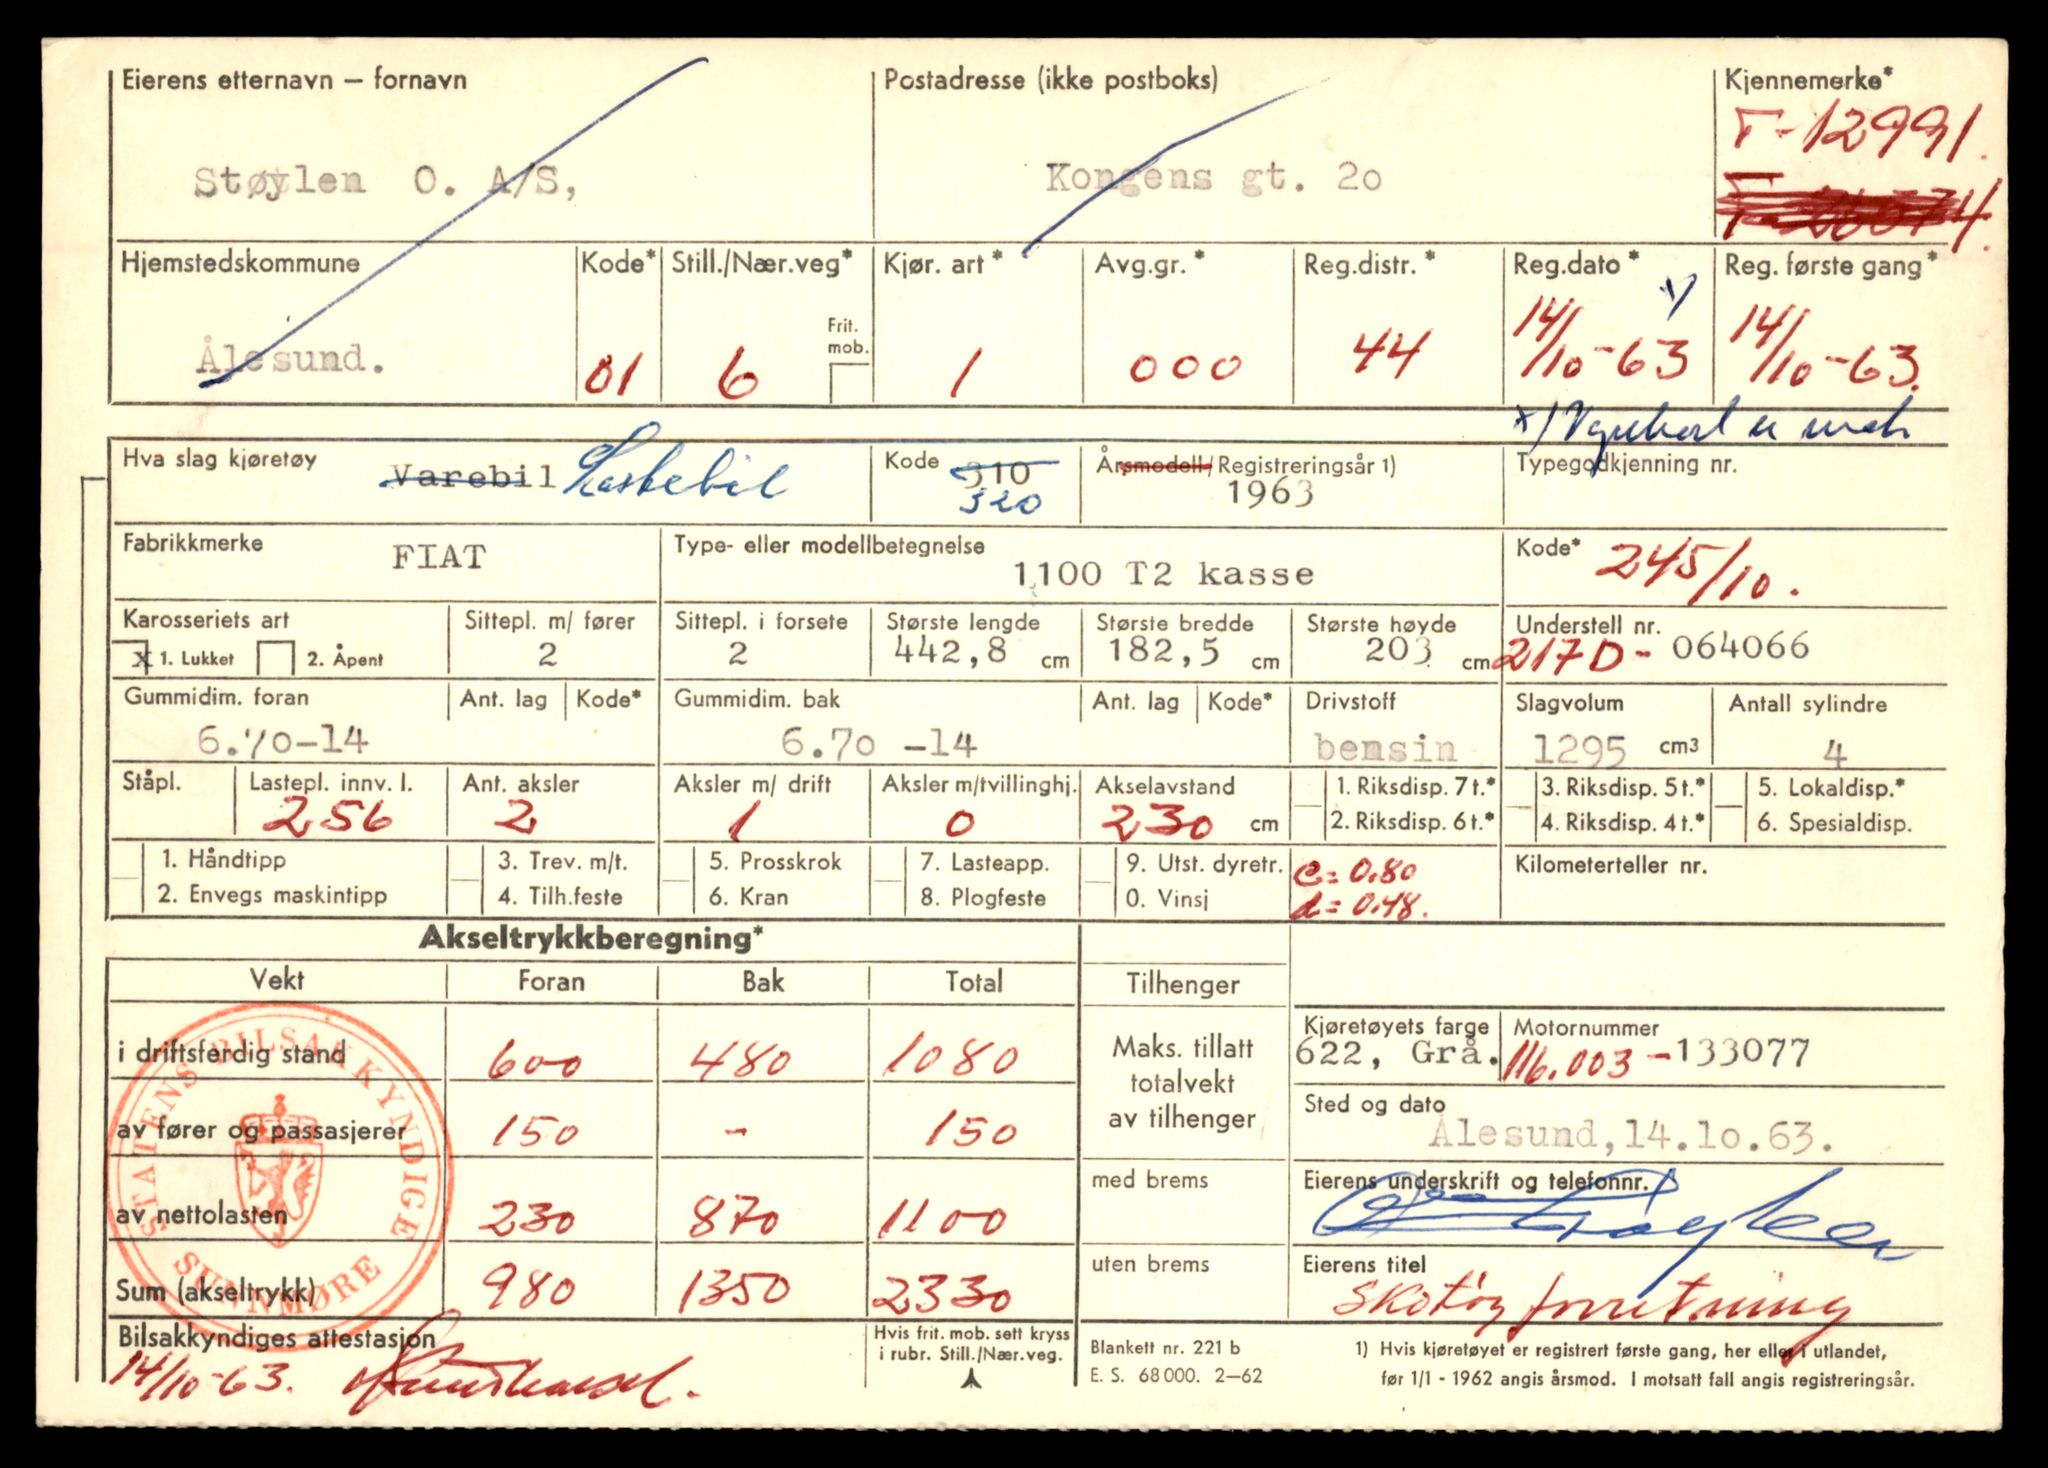 Eierens etternavn – fornavn
Støylen O. A/S,
Postadresse (ikke postboks)
Kongens gt. 2o
Kjennemerke*
T-12991.
Hjemstedskommune
Ålesund.
Kode*
01
Still./Nær.veg*
6
Frit. mob.
Kjør. art*
1
Avg.gr.*
000
Reg.distr.*
44
Reg.dato*
14/10-63
Reg. første gang*
14/10-63.
Hva slag kjøretøy
Varebil Lastebil
Kode
310
320
Årsmodell/Registreringsår 1)
1963
Typegodkjenning nr.
Fabrikkmerke
FIAT
Type- eller modellbetegnelse
1100 T2 kasse
Kode*
245/10.
Karosseriets art
x 1. Lukket 2. Åpent
Sittepl. m/ fører
2
Sittepl. i forsete
2
Største lengde
442,8 cm
Største bredde
182,5 cm
Største høyde
203 cm
Understell nr.
217D - 064066
Gummidim. foran
6.70-14
Ant. lag
Kode*
Gummidim. bak
6.70 -14
Ant. lag
Kode*
Drivstoff
bensin
Slagvolum
1295 cm3
Antall sylindre
4
Ståpl.
Lastepl. innv. l.
256
Ant. aksler
2
Aksler m/ drift
1
Aksler m/tvillinghj.
0
Akselavstand
230 cm
1. Riksdisp. 7 t.*
2. Riksdisp. 6 t.*
3. Riksdisp. 5 t.*
4. Riksdisp. 4 t.*
5. Lokaldisp.*
6. Spesialdisp.
1. Håndtipp
2. Envegs maskintipp
3. Trev. m/t.
4. Tilh.feste
5. Prosskrok
6. Kran
7. Lasteapp.
8. Plogfeste
9. Utst. dyretr.
0. Vinsj
c = 0.80
d = 0.48.
Kilometerteller nr.
Akseltrykkberegning*
Vekt Foran Bak Total
i driftsferdig stand 600 480 1080
av fører og passasjerer 150 - 150
av nettolasten 230 870 1100
Sum (akseltrykk) 980 1350 2330
STATENS BILSAKKYNDIGE
SUNNMØRE
Bilsakkyndiges attestasjon
14/10-63.
Hvis frit. mob. sett kryss
i rubr. Still./Nær.veg.
Tilhenger
Maks. tillatt
totalvekt
av tilhenger
med brems
uten brems
Kjøretøyets farge
622, Grå.
Motornummer
116.003 - 133077
Sted og dato
Ålesund,14.10.63.
Eierens underskrift og telefonnr.
Eierens titel
Skotøyforretning
Blankett nr. 221 b
E. S. 68 000. 2–62
1) Hvis kjøretøyet er registrert første gang, her eller i utlandet,
før 1/1 - 1962 angis årsmod. I motsatt fall angis registreringsår.